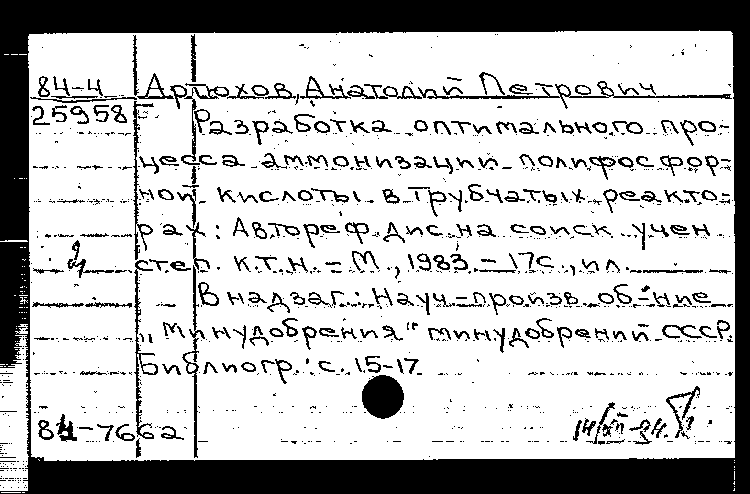 84-4 Артюхов, Анатолий Петрович
25958 Разработка оптимального про-
цесса аммонизации полифосфор-
ной кислоты в трубчатых реакто-
рах: Автореф. дис. на соиск. учен.
степ. к.т.н. - М., 1983. - 17с., ил.
В надзаг.: Науч-произв. об-ние
„Минудобрения" минудобрений СССР.
Библиогр.: с. 15-17
84-7662